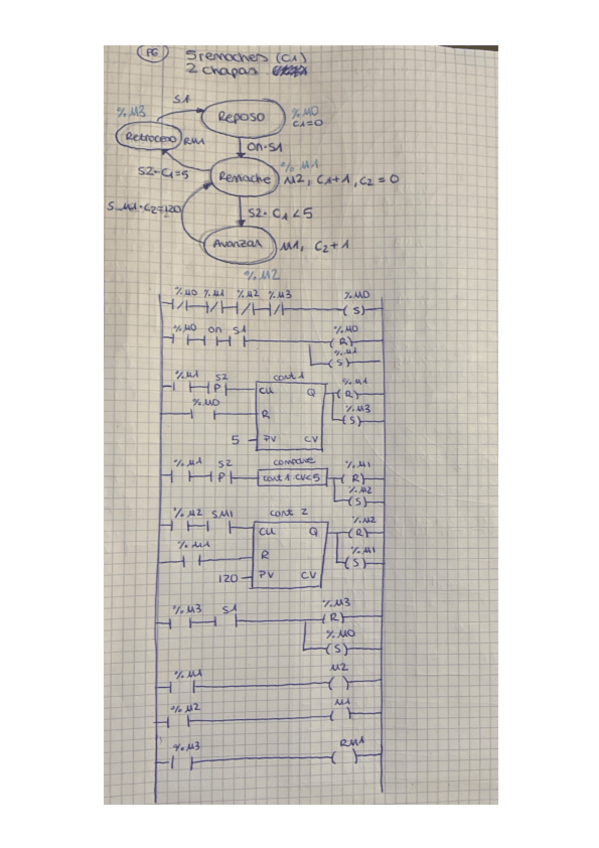 P6
5 remaches (C1)
2 chapas
%M3
S1
Reposo
%M0
C1=0
Retroceso
RM1
on·S1
%M1
S2·C1=5
Remache
M2, C1+1, C2=0
S_M1·C2=120
S2·C1<5
Avanzar
M1, C2+1
%M2
%M0 %M1 %M2 %M3 %M0
(S)
%M0 on S1 %M0
(R)
%M1
(S)
%M1 S2 cont 1 %M1
P CU Q (R)
%M0 %M3
R (S)
5 PV CV
%M1 S2 compare %M1
P cont 1.CV<5 (R)
%M2
(S)
%M2 SM1 cont 2 %M2
CU Q (R)
%M1 %M1
R (S)
120 PV CV
%M3 S1 %M3
(R)
%M0
(S)
%M1 M2
%M2 M1
%M3 RM1